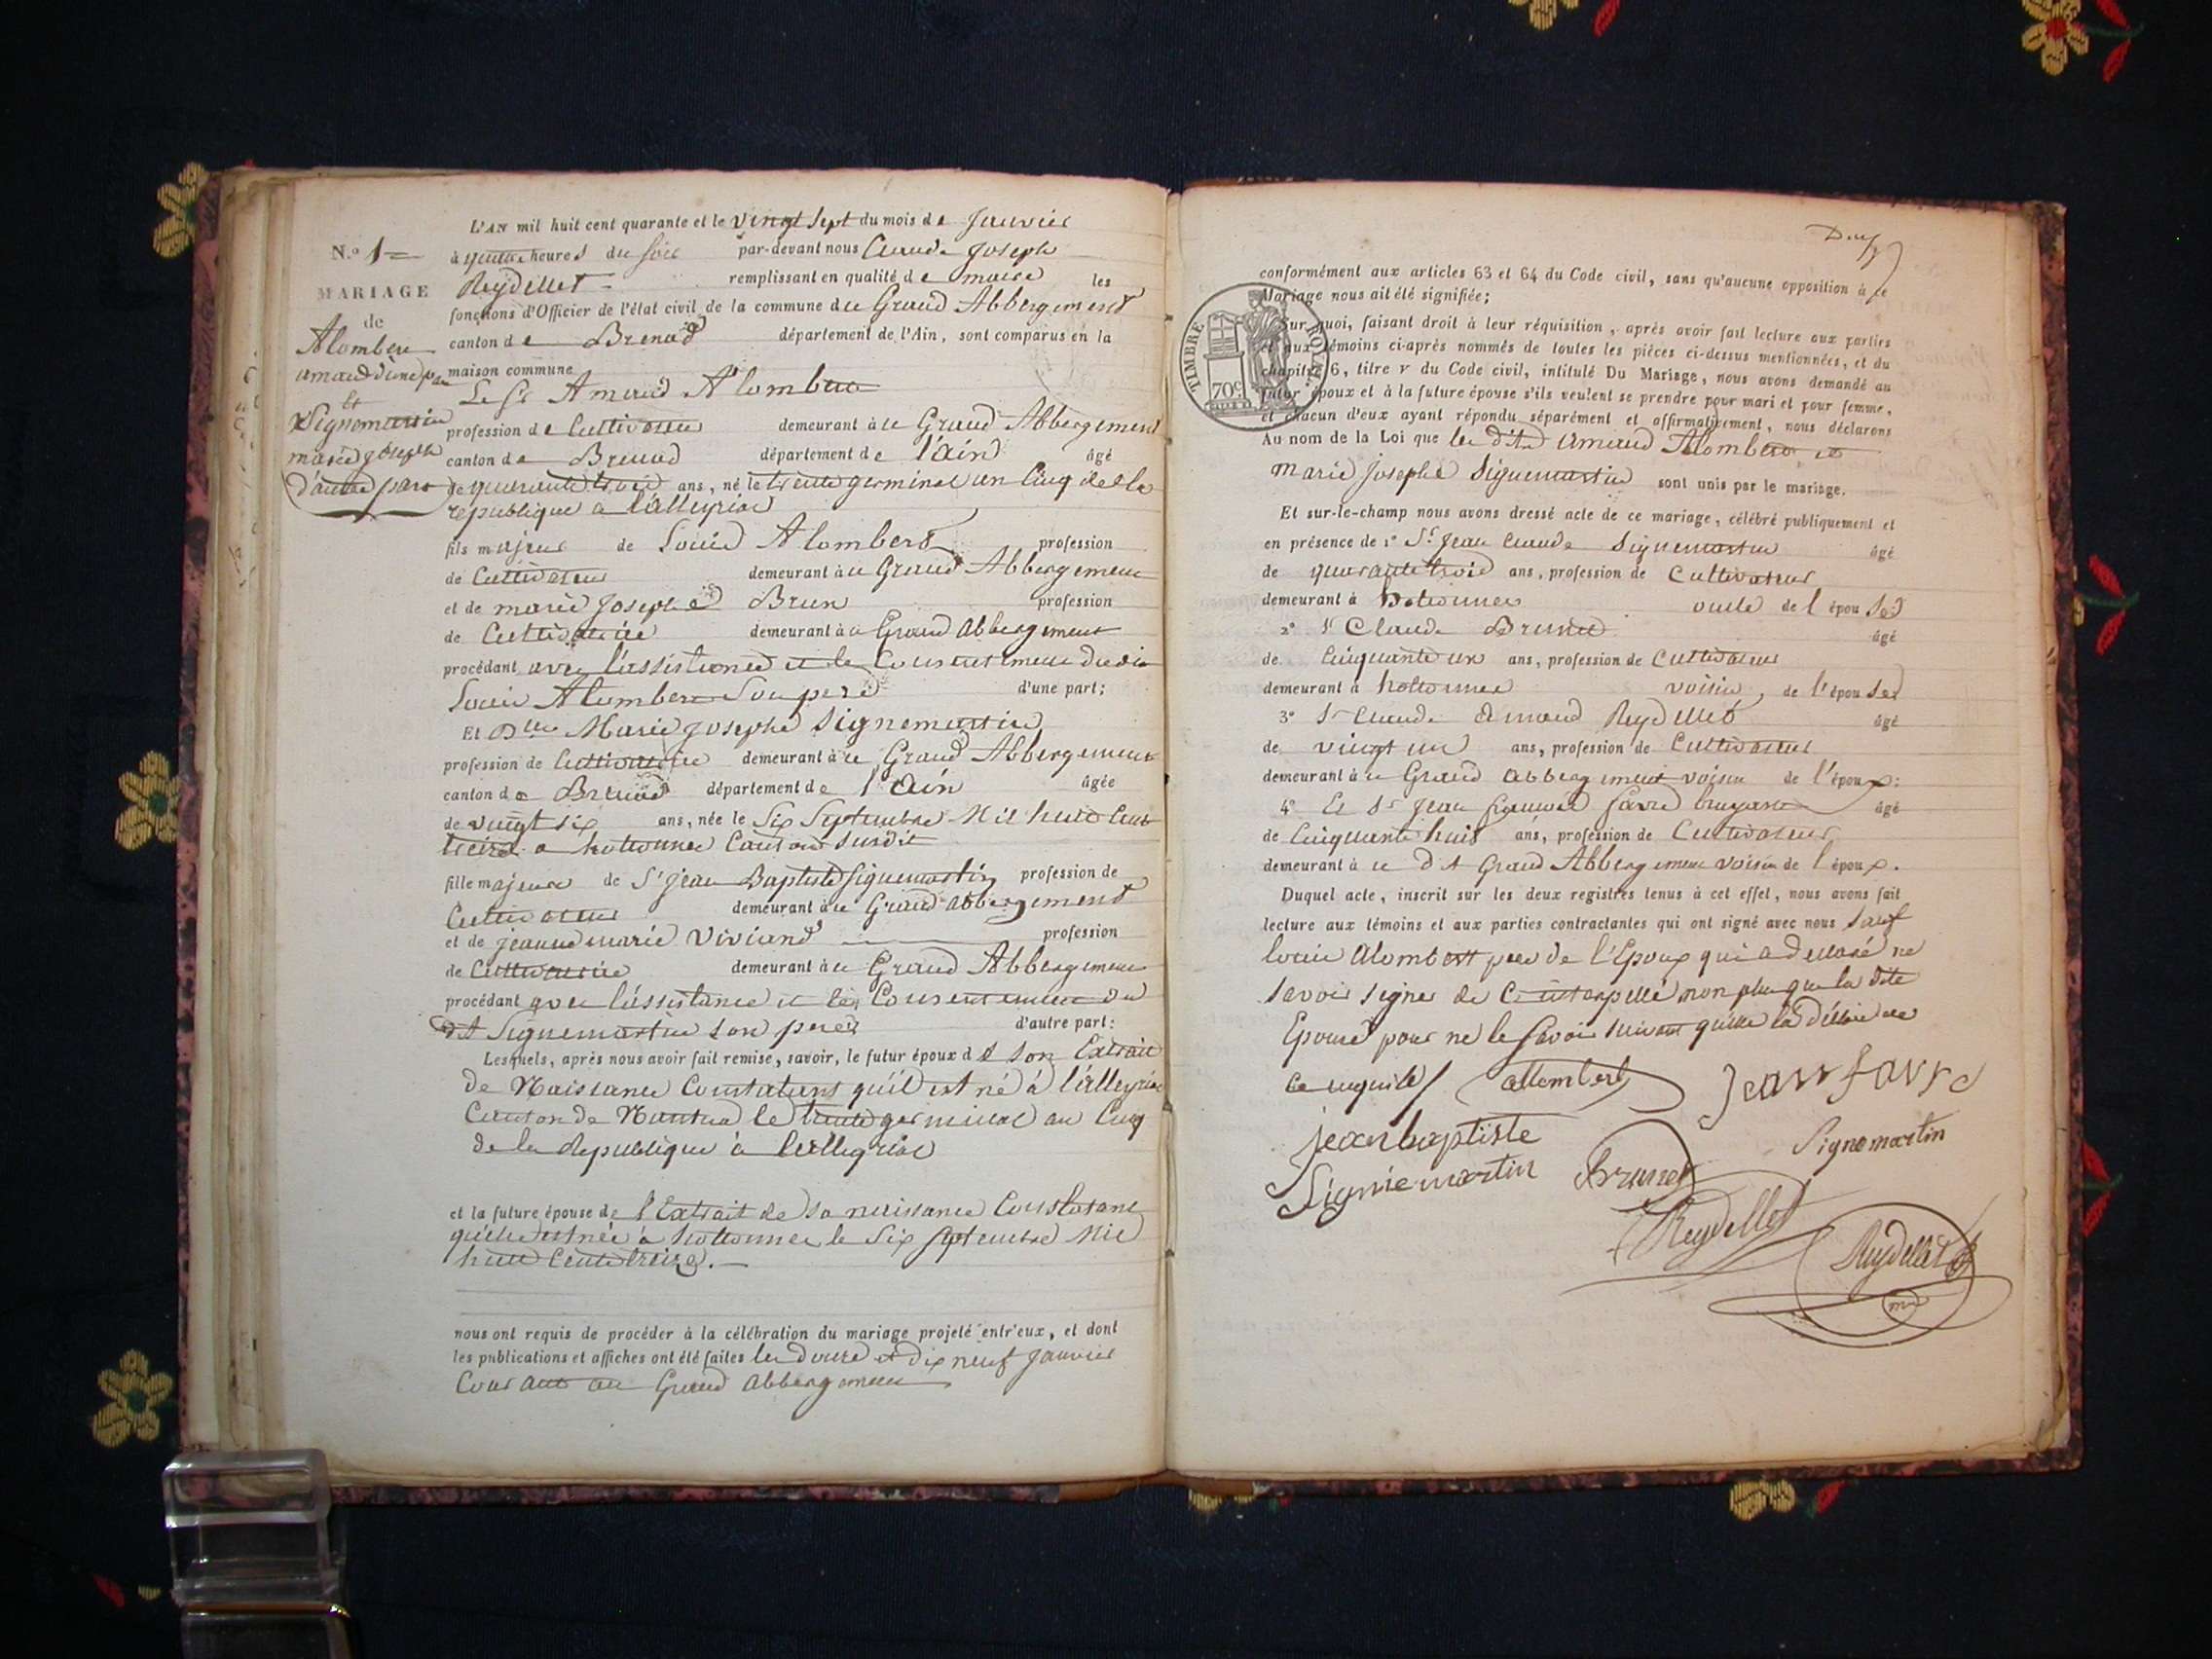 L'AN mil huit cent quarante et le vingt sept du mois de Janvier
N.º 1 à quatre heures du soir par-devant nous Claude Joseph
MARIAGE
Reydellet remplissant en qualité de maire les
fonctions d'Officier de l'état civil de la commune du Grand Abbergement
de
Alombert
canton de Brenod département de l'Ain, sont comparus en la
amand d'une part
maison commune
Le Sr Amand Alombert
et
Signemartin
profession de Cultivateur demeurant à ce Grand Abbergement
marie josephe
canton de Brenod département de l'ain âgé
d'autre part
de quarante trois ans, né le trente germinal an Cinq de la
republique a lalleyriat
fils majeur de Louis Alombert profession
de Cultivateur demeurant à ce Grand Abbergement
et de marie Josephe Brun profession
de Cultivatrice demeurant à ce Grand abbergement
procédant avec l'assistance et le Consentement dudit
Louis Alombert Son pere d'une part;
Et Dlle Marie josephe Signemartin
profession de Cultivatrice demeurant à ce Grand Abbergement
canton de Brenod département de l'ain âgée
de vingt six ans, née le Six Septembre Mil huit Cent
treize a hotonnes Canton susdit
fille majeure de Sr jean Baptiste Signemartin profession de
Cultivateur demeurant à ce Grand abbergement
et de jeanne marie Viviand profession
de Cultivatrice demeurant à ce Grand Abbergement
procédant avec l'assistance et le Consentement du
dt Signemartin son pere d'autre part:
Lesquels, après nous avoir fait remise, savoir, le futur époux de son Extrait
de Naissance Constatant qu'il est né à l'alleyriat
Canton de Nantua le trente germinal an Cinq
de la Republique à lalleyriat
et la future épouse de l'Extrait de sa naissance Constatant
qu'elle est née a hotonnes le Six septembre Mil
huit Cent treize.
nous ont requis de procéder à la célébration du mariage projeté entr'eux, et dont
les publications et affiches ont été faites les douze et dix neuf Janvier
Courant au Grand abbergement
conformément aux articles 63 et 64 du Code civil, sans qu'aucune opposition à ce
Mariage nous ait été signifiée;
TIMBRE ROYAL
70c
Sur quoi, faisant droit à leur réquisition, après avoir fait lecture aux parties
et aux témoins ci-après nommés de toutes les pièces ci-dessus mentionnées, et du
chapitre 6, titre v du Code civil, intitulé Du Mariage, nous avons demandé au
futur époux et à la future épouse s'ils veulent se prendre pour mari et pour femme,
et chacun d'eux ayant répondu séparément et affirmativement, nous déclarons
Au nom de la Loi que les dits amand Alombert et
marie josephe Signemartin sont unis par le mariage.
Et sur-le-champ nous avons dressé acte de ce mariage, célébré publiquement et
en présence de 1º Sr Jean Claude Signemartin âgé
de quarante trois ans, profession de Cultivateur
demeurant à hotonnes oncle de l'épouse
2º Sr Claude Brunet âgé
de Cinquante un ans, profession de Cultivateur
demeurant à hotonnes voisin, de l'épouse
3º Sr Claude Armand Reydellet âgé
de vingt un ans, profession de Cultivateur
demeurant à ce Grand abbergement voisin de l'époux:
4º Et Sr Jean françois favre âgé
de Cinquante huit ans, profession de Cultivateur
demeurant à ce dt Grand Abbergement voisin de l'époux.
Duquel acte, inscrit sur les deux registres tenus à cet effet, nous avons fait
lecture aux témoins et aux parties contractantes qui ont signé avec nous sauf
louis alombert pere de l'Epoux qui a declaré ne
savoir signer de Ce interpellé non plus que la dite
Epouse pour ne le savoir suivant quelle la déclaré de
Ce enquise / allombert jean favre
jean baptiste
Signiemartin Brunet Signemartin
Reydellet Reydellet